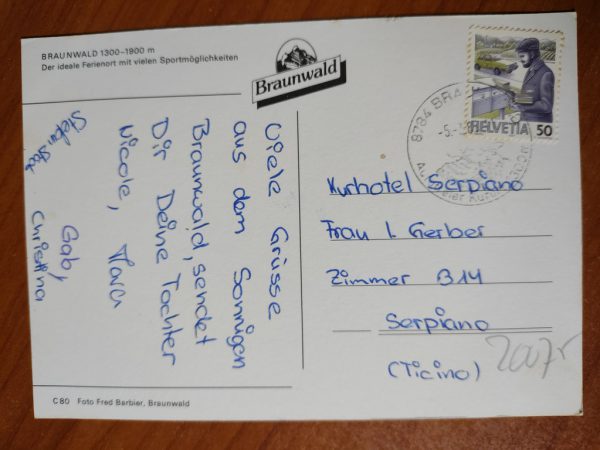 BRAUNWALD 1300–1900 m
Der ideale Ferienort mit vielen Sportmöglichkeiten
Braunwald
Viele Grüsse
aus dem Sonnigen
Braunwald, sendet
Dir Deine Tochter
Nicole,
Gaby
Christina
HELVETIA 50
8784
Kurhotel Serpiano
Frau I. Gerber
Zimmer 314
Serpiano
(Ticino)
C80 Foto Fred Barbier, Braunwald